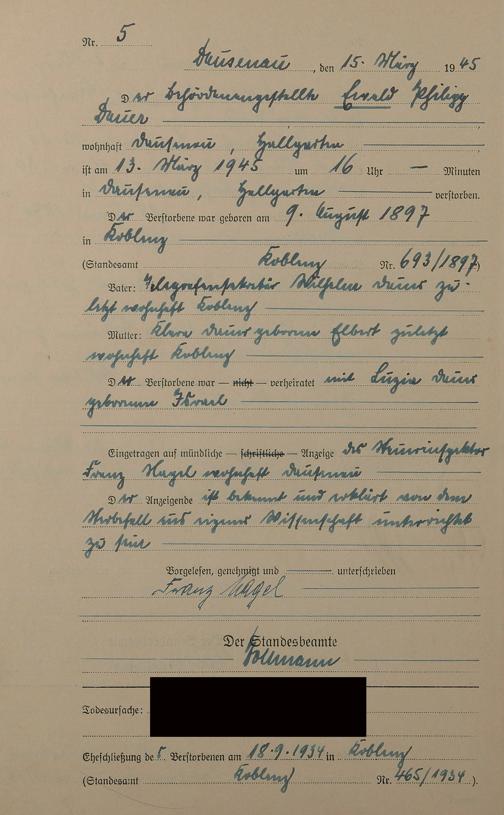 Nr. 5
Dausenau, den 15. März 1945
Der Behördenangestellte Ewald Philipp
Dauer
wohnhaft Dausenau, Hallgarten
ist am 13. März 1945 um 16 Uhr — Minuten
in Dausenau, Hallgarten verstorben.
Der Verstorbene war geboren am 9. August 1897
in Koblenz
(Standesamt Koblenz Nr. 693/1897)
Vater: Telegrafensekretär Wilhelm Dauer zu-
letzt wohnhaft Koblenz
Mutter: Klara Dauer geborene Elbert zuletzt
wohnhaft Koblenz
Der Verstorbene war — nicht — verheiratet mit Luzia Dauer
geborenen Israel
Eingetragen auf mündliche — schriftliche — Anzeige des
Franz Nagel wohnhaft Dausenau
Der Anzeigende ist bekannt und erklärt von dem
Sterbefall aus eigener Wissenschaft unterrichtet
zu sein
Vorgelesen, genehmigt und unterschrieben
Franz Nagel
Der Standesbeamte
Todesursache:
Eheschließung des Verstorbenen am 18.9.1934 in Koblenz
(Standesamt Koblenz Nr. 465/1934).